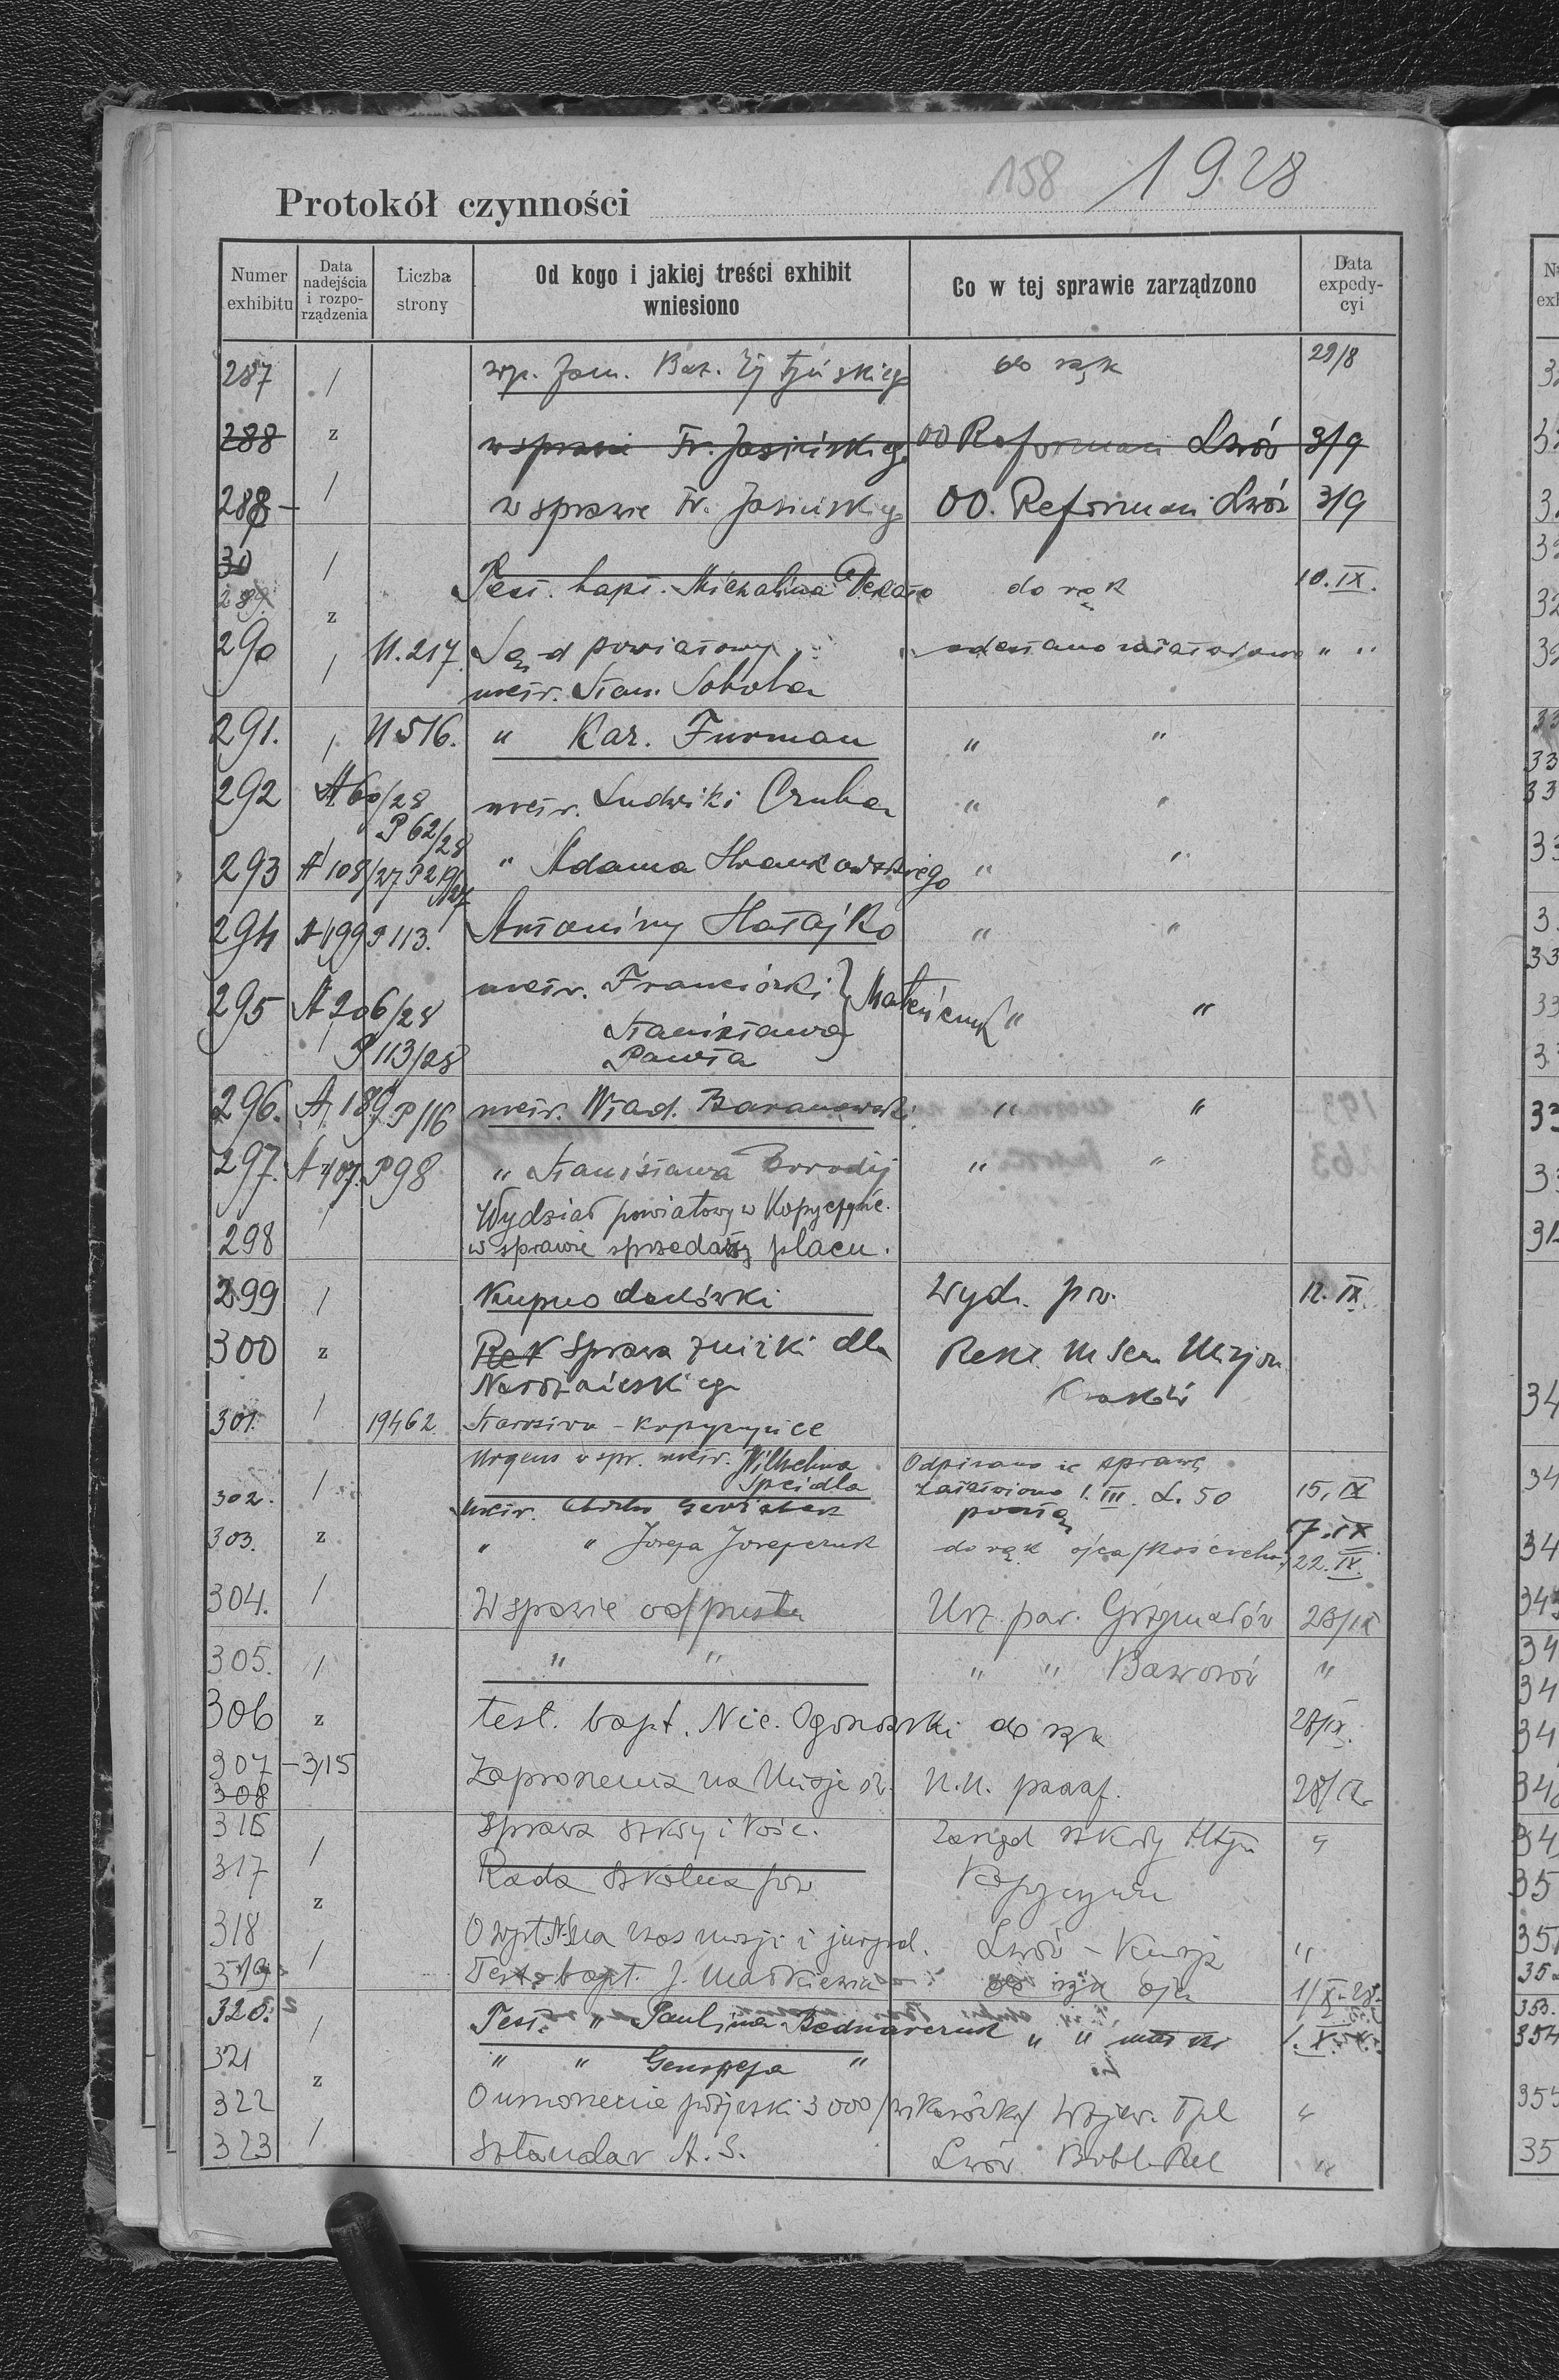 158 1928
Protokół czynności
Numer exhibitu
Data nadejścia i rozpo- rządzenia
Liczba strony
Od kogo i jakiej treści exhibit wniesiono
Co w tej sprawie zarządzono
Data expedy- cyi
287 / do rąk 29/8
288 z w sprawie Fr. Jasińskiego OO Reformaci Lwów 3/9
288 - / w sprawie Fr. Jasińskiego OO. Reformaci Lwów 3/9
30 /
289. Test. bapt. Michalina do rąk 10. IX.
z
290 / N. 217. Sąd powiatowy " "
metr. Stan. Soboha
291. / N 516. " Kar. Furman " "
292 A 60/28 metr. Ludwiki " "
P 62/28
293 A 108/27 P 219/27 " Adama " "
294 A 199 P 113. Antoniny Hałajko " "
295 A 206/28 metr. Franciszki " "
/ P 113/28 Stanisława
Pawła
296. A 189 P/16 metr. Wład. Baranowski " "
297. A 107. P 98 " Stanisława Borodij " "
/ Wydział powiatowy w Kopyczyńc.
298 w sprawie sprzedaży placu.
299 / Kupno dachówki Wydz. pow. 12. IX.
300 z Rek Sprawa zniżki dla Rekt. M Sem Misjon.
Kraków
301. / 19462 Starostwo - Kopyczyńce
Urgens w spr. metr. Wilhelma Odpisano że sprawę
302. / Speidla załatwiono 1. III. L. 50 15. IX
Metr. pocztą 17. IX
303. z " " Józefa Józefczuk do rąk ojca /Kościelny/ 22. IX.
304. / W sprawie odpustu Urz. par. Grzymałów 28/IX
305. / " " " " Baworów "
306 z Test. bapt. Nic. Ogonowski do rąk 28/IX.
307 - 3/15 Zaproszenia na Misje św. N.N. paraf. 28/IX
308
316 Sprawa szkoły i kośc. Zarząd szkoły "
317 / Rada szkolna pow Kopyczyńce
z
318 czas misji i jurysd. Lwów - Kurja "
319 / Test. bapt. J. Maćkiewicz do rąk ojca 1/X-28
320. / Test. " Paulina Bednarczuk " " matki 1. X.
321 " " Genowefa "
z
322 O umorzenie pożyczki 3000 Wojew. Tpl "
323 / Sztandar A. S. Lwów "